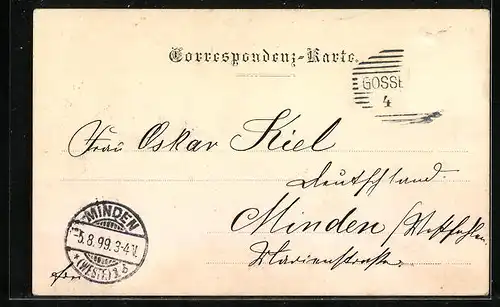 Correspondenz-Karte.
GOSSE
4
Frau Oskar Kiel
Deutschland.
Minden /Westfalen
Marienstraße.
MINDEN
5.8.99.3-4N.
*(WESTF.)*